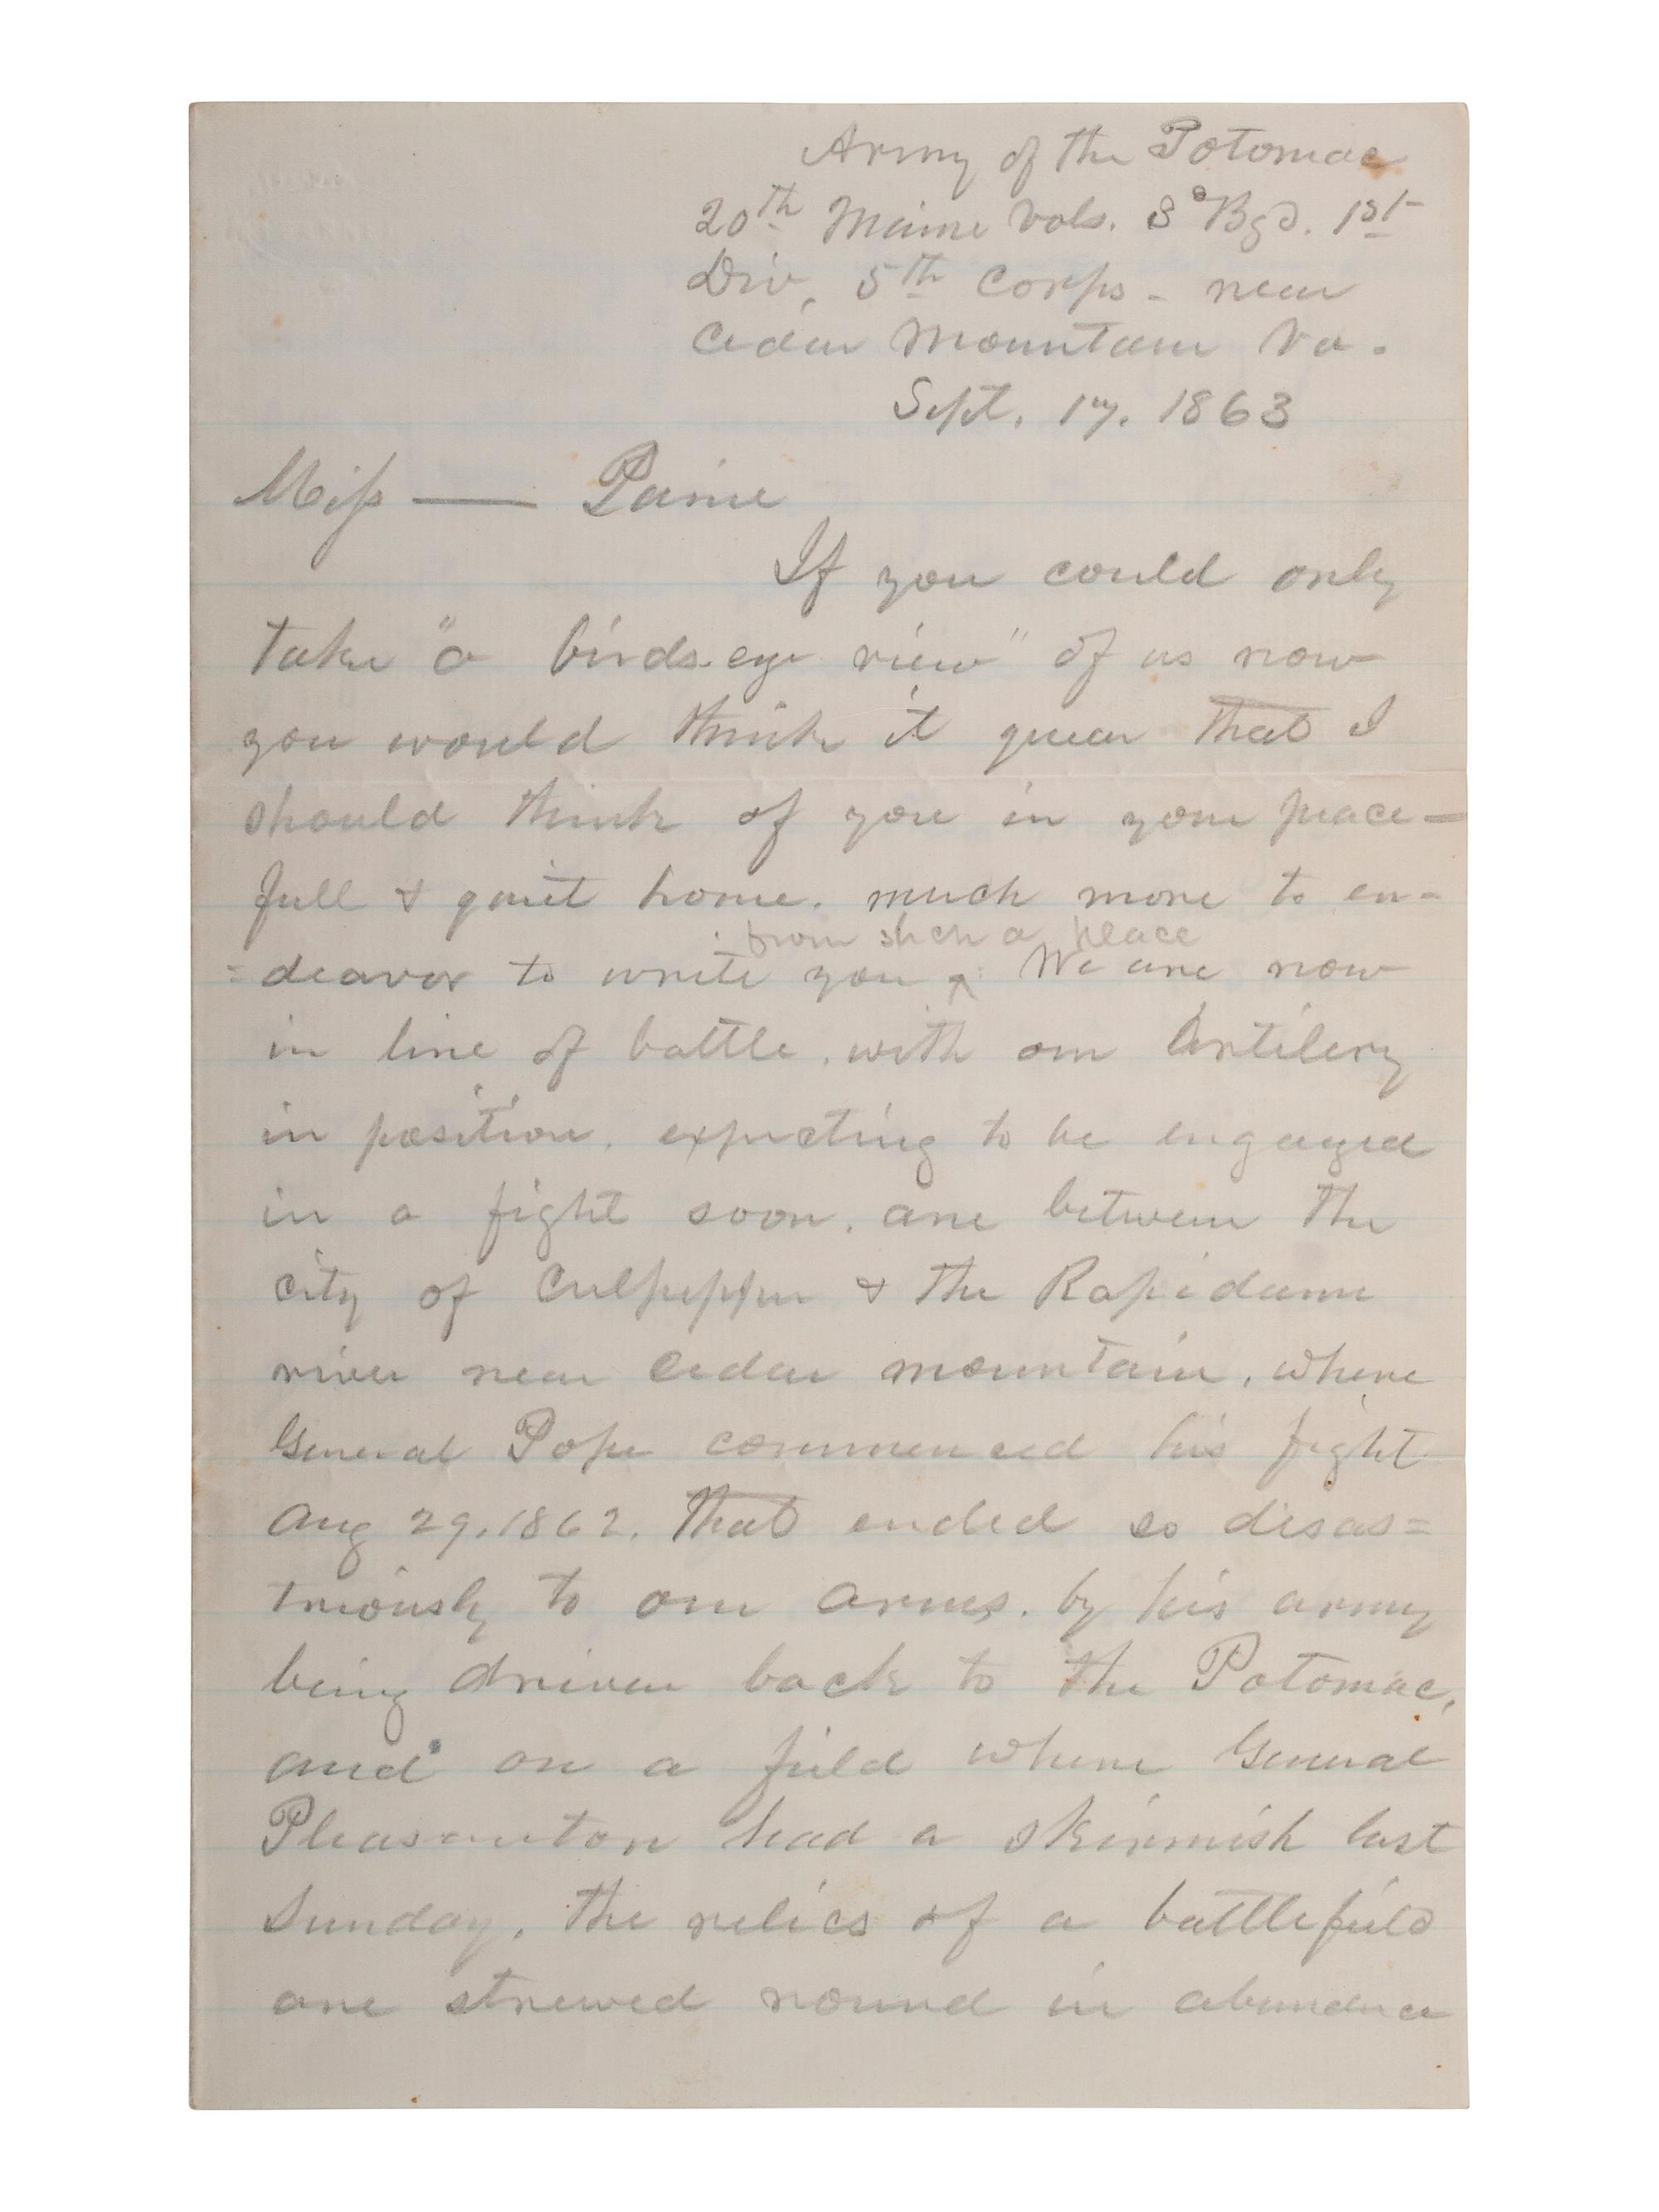 Army of the Potomac
20th Maine Vols. 3d Bgd. 1st
Div, 5th Corps - near
Cedar Mountain Va.
Sept. 17. 1863
Miss —— Paine
If you could only
take "a birds-eye view" of us now
you would think it queer that I
should think of you in your peace-
full & quiet home. much more to en-
=deavor to write you ^ We are now
from such a place
in line of battle. with our Artilery
in position. expecting to be engaged
in a fight soon. are between the
city of Culpepper & the Rapidann
river near Cedar mountain, where
General Pope commenced his fight
Aug 29. 1862. that ended so disas=
triously to our arms. by his army
being driven back to the Potomac,
and on a field where General
Pleasanton had a skirmish last
Sunday, the relics of a battlefield
are strewed round in abundace